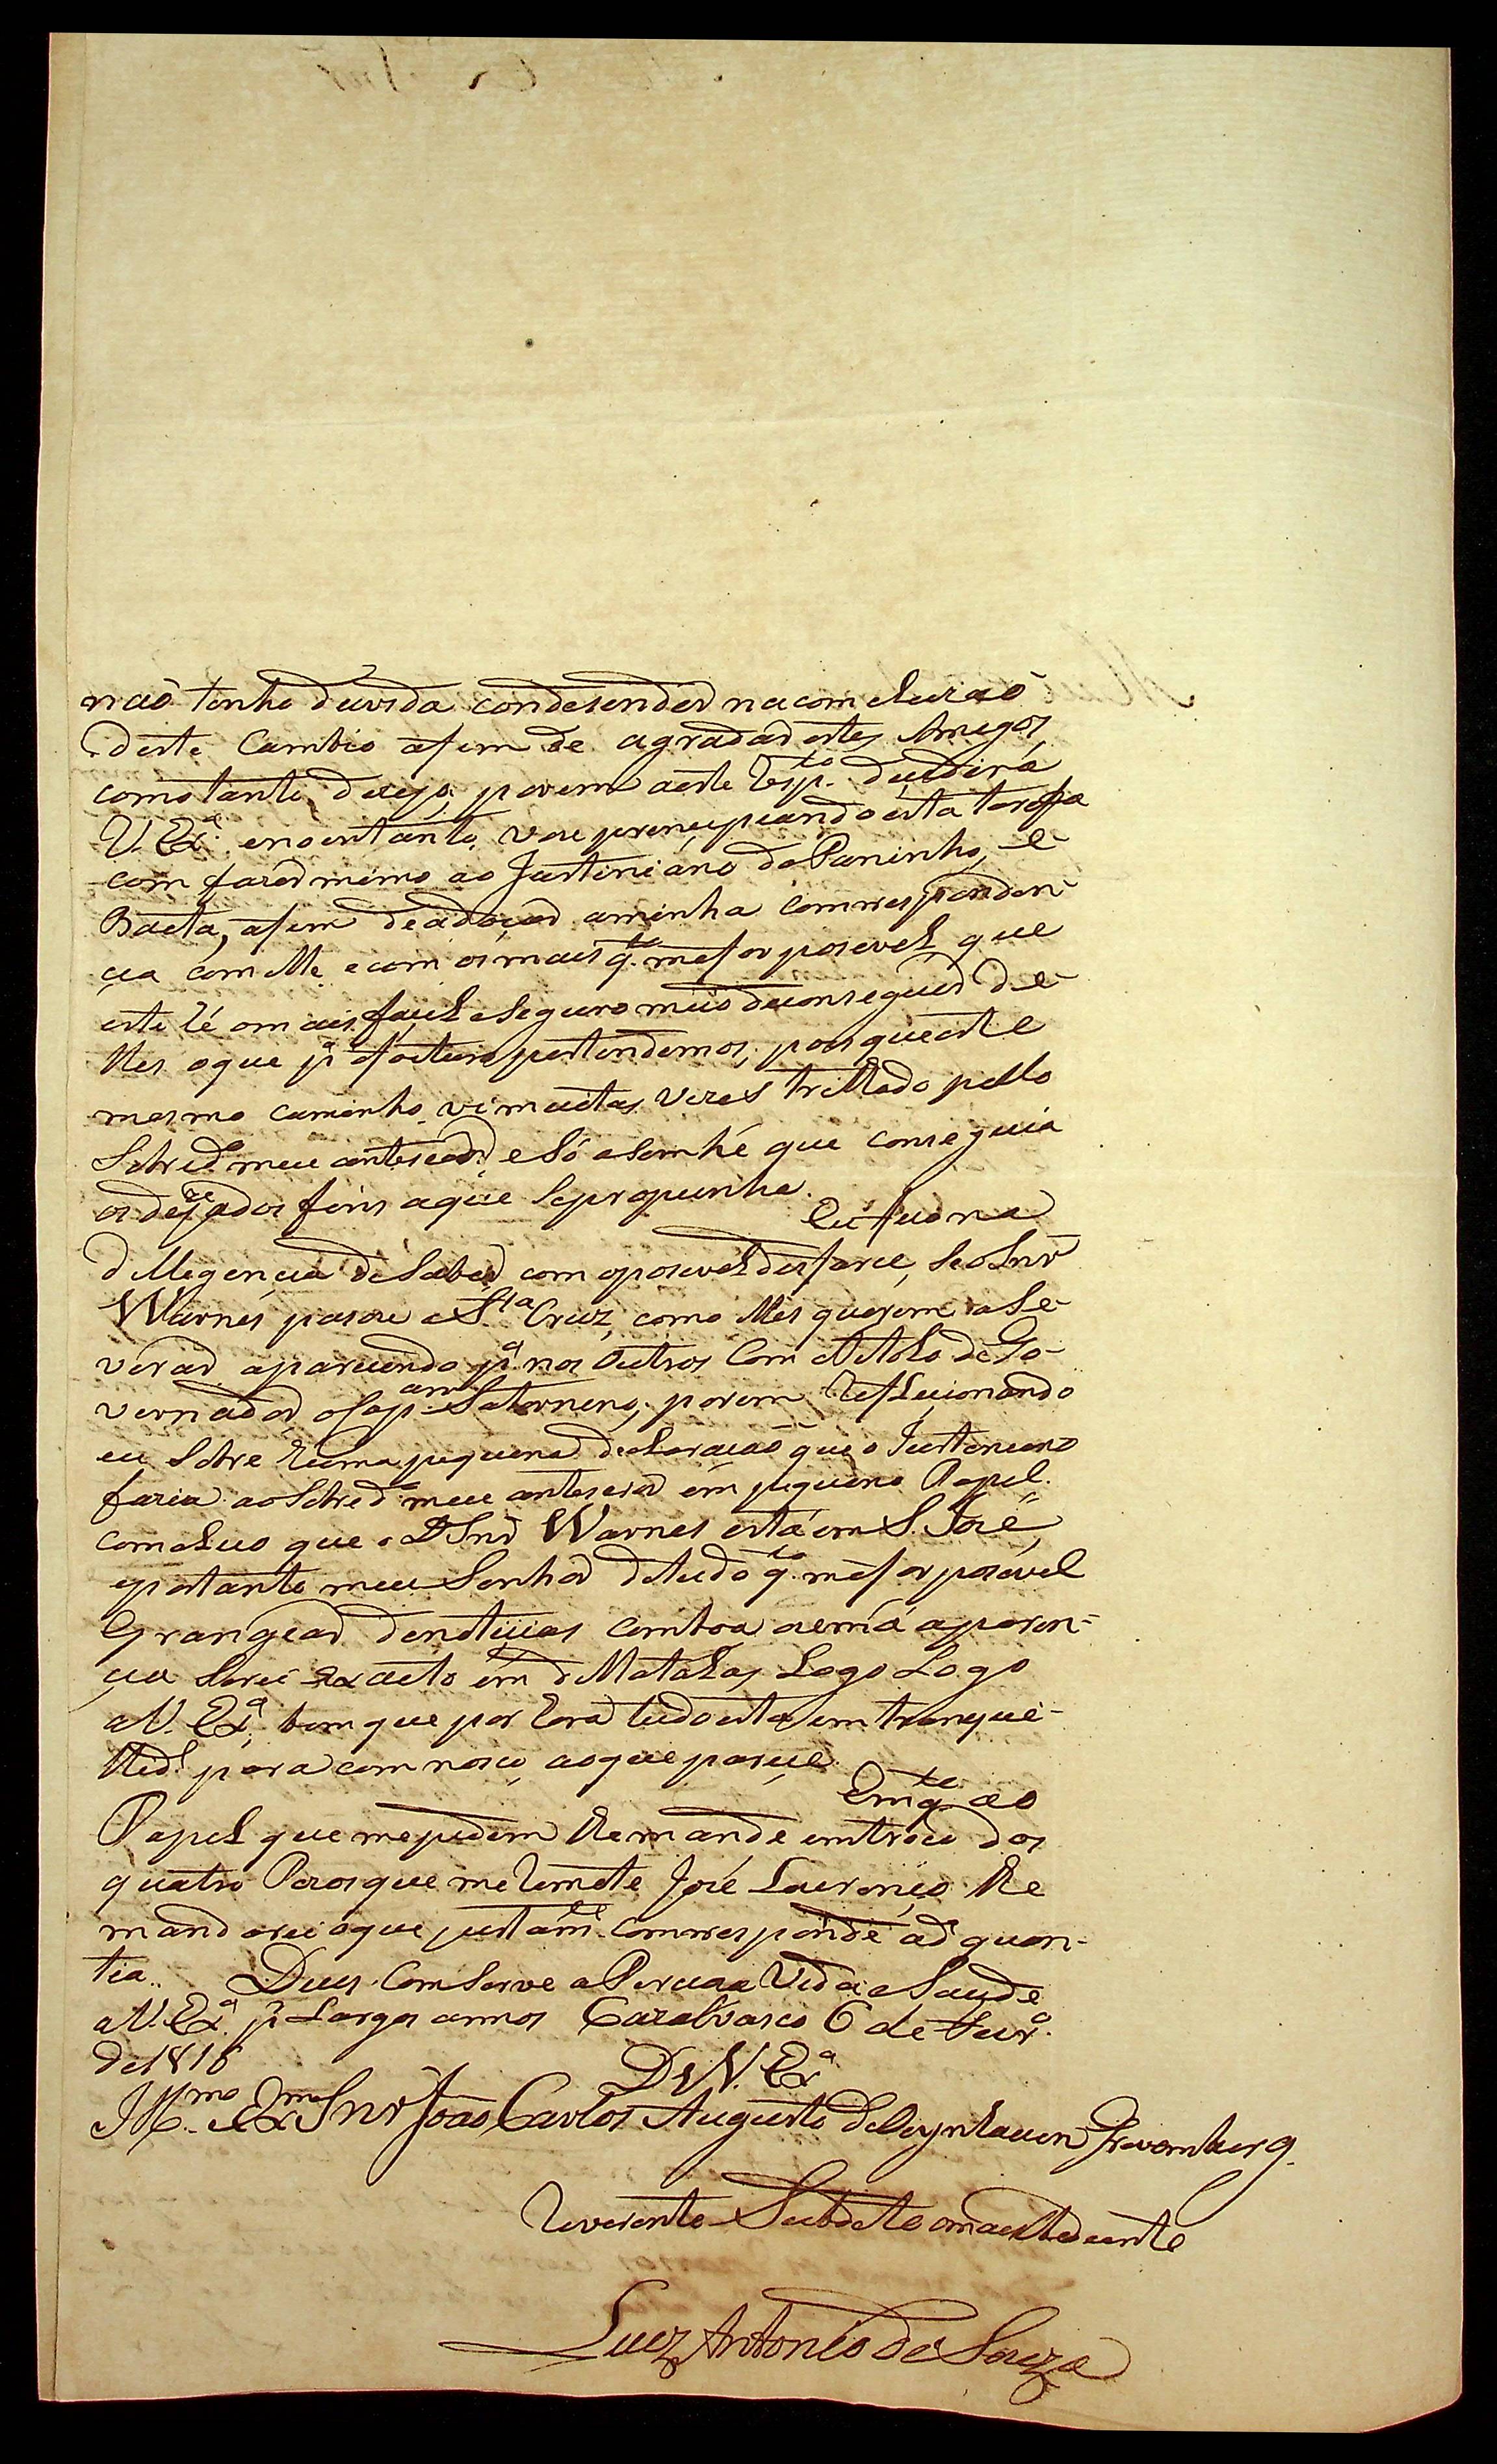 naõ tenho duvida condesender na comcluzaõ
deste Cambio afim de agradar estes Amigos,
como tanto dezejo; porem aeste resp.to decedirá
V. Ex.a enoentanto, vou prencepiando esta tarefa
com fazer mimo ao Justiniano de Paninho, e
Baeta, afim de adoçar aminha comrresponden-
cia com elle e com os mais q.to mefor posivel que
este hé omais facil eseguro meio deconseguir de-
lles oque p.a ofucturo pertendemos, pois queeste
mesmo caminho vi muitas vezes trilhado pello
Sobred.o meu antesesor, e Só asim hé que conseguia
os dezejados fins aque Sepropunha.
Eu fico na
dilligencia de Saber, com oposivel disfarce, Se o Snr
Warnes pasou a S.ta Cruz, como elles querem aSe-
verar aparecendo p.a nos outros Com otitolo de Go-
vernador oCap.am Satornino; porem reflecionando
eu Sobre huma pequena declaraçaõ que o Justeniano
fazia ao Sobred.o meu antesesor em pequeno Papel
comcluo que o D. Snr Warnes está em S. José,
eportanto meu Senhor detudo q.to mefor posivel
Grangear denoticias comboa aremia aparen-
cia Serei exacto em dillatalas Logo Logo
a V. Ex.a; bem que por hora tudo esta em tranqui-
llid.e para com nosco, aoque parece.
Em q.to ao
Papel que mepedem lhe mande emtroco dos
quatro Pezos que meremete José Lourenço lhe
mandarei oque justam.te comrresponde ad.a quan-
tia. Deus Comserve a Perciaza Vida e Saude
a V. Ex.a p.r Largos annos Cazalvasco 6 de Fevr.o
de 1816
De V. Ex.a
Ill.mo e Ex.mo Snr João Carlos Augusto de Oeynhauzen Grevemberg
Reverente Subdito omaisobediente
Luiz Antonio de Souza